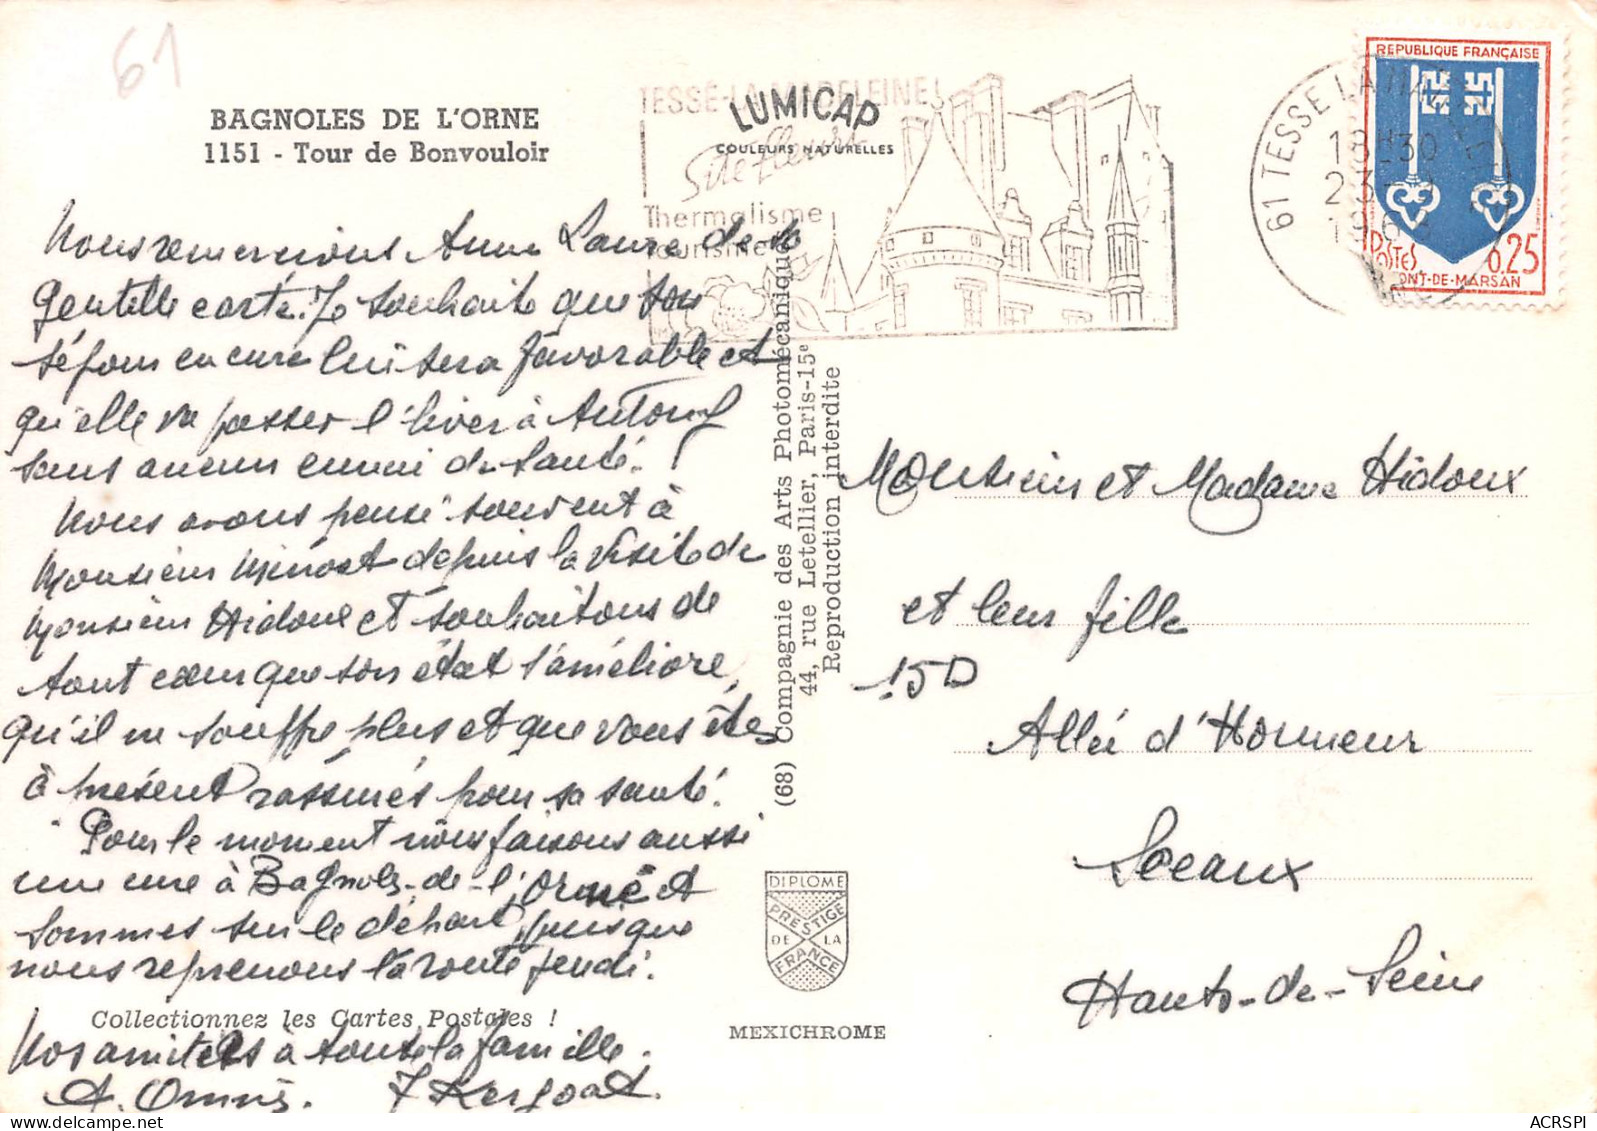 61
BAGNOLES DE L'ORNE
1151 - Tour de Bonvouloir
TESSÉ-LA-MADELEINE
LUMICAP
COULEURS NATURELLES
Site fleuri
Thermalisme
Tourisme
61 TESSE LA MADELEINE
18H30
23-9
196
REPUBLIQUE FRANÇAISE
POSTES 0,25
MONT-DE-MARSAN
Nous remercions Anne Laure de sa
gentille carte. Je souhaite que son
séjour en cure lui sera favorable et
qu'elle va passer l'hiver à
sans aucun ennui de santé. !
Nous avons pensé souvent à
Monsieur depuis la visite de
Monsieur Hidoux et souhaitons de
tout cœur que son état s'améliore,
qu'il ne souffre plus et que vous êtes
à présent rassurés pour sa santé.
Pour le moment nous faisons aussi
une cure à Bagnoles-de-l'Orne et
sommes sur le départ puisque
nous reprenons la route jeudi.
Collectionnez les Cartes Postales !
Nos amitiés à toute la famille.
(68) Compagnie des Arts Photomécaniques
44, rue Letellier, Paris-15e
Reproduction interdite
DIPLOME
PRESTIGE
DE LA
FRANCE
MEXICHROME
Monsieur et Madame Hidoux
et leur fille
15D
Allée d'Honneur
Sceaux
Hauts-de-Seine
ACRSPI